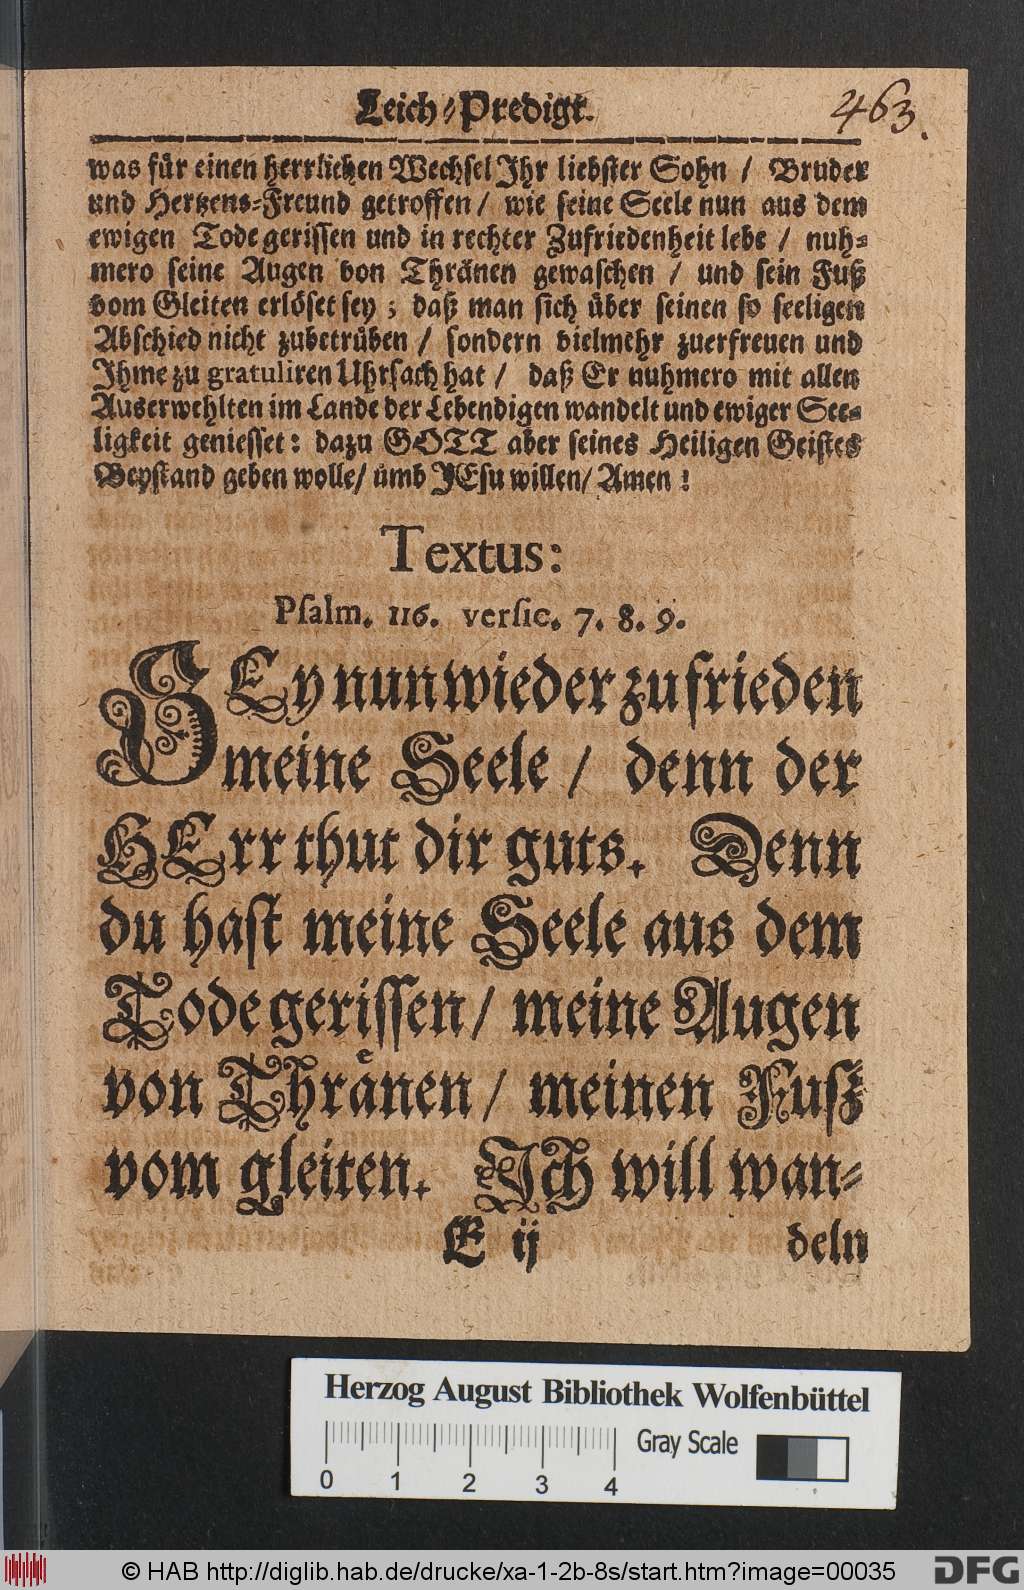 Leich-Predigt.
463.
was für einen herrlichen Wechsel Ihr liebster Sohn / Bruder
und Hertzens-Freund getroffen / wie seine Seele nun aus dem
ewigen Tode gerissen und in rechter Zufriedenheit lebe / nuh-
mero seine Augen von Thränen gewaschen / und sein Fuß
vom Gleiten erlöset sey ; daß man sich über seinen so seeligen
Abschied nicht zubetrüben / sondern vielmehr zuerfreuen und
Ihme zu gratuliren Uhrsach hat / daß Er nuhmero mit allen
Auserwehlten im Lande der Lebendigen wandelt und ewiger See-
ligkeit geniesset: dazu GOTT aber seines Heiligen Geistes
Beystand geben wolle / ümb JEsu willen / Amen !
Textus:
Psalm. 116. versic. 7. 8. 9.
SEy nun wieder zu frieden
meine Seele / denn der
HErr thut dir guts. Denn
du hast meine Seele aus dem
Tode gerissen / meine Augen
von Thränen / meinen Fusz
vom gleiten. Ich will wan-
E ij
deln
Herzog August Bibliothek Wolfenbüttel
Gray Scale
0 1 2 3 4
© HAB http://diglib.hab.de/drucke/xa-1-2b-8s/start.htm?image=00035
DFG